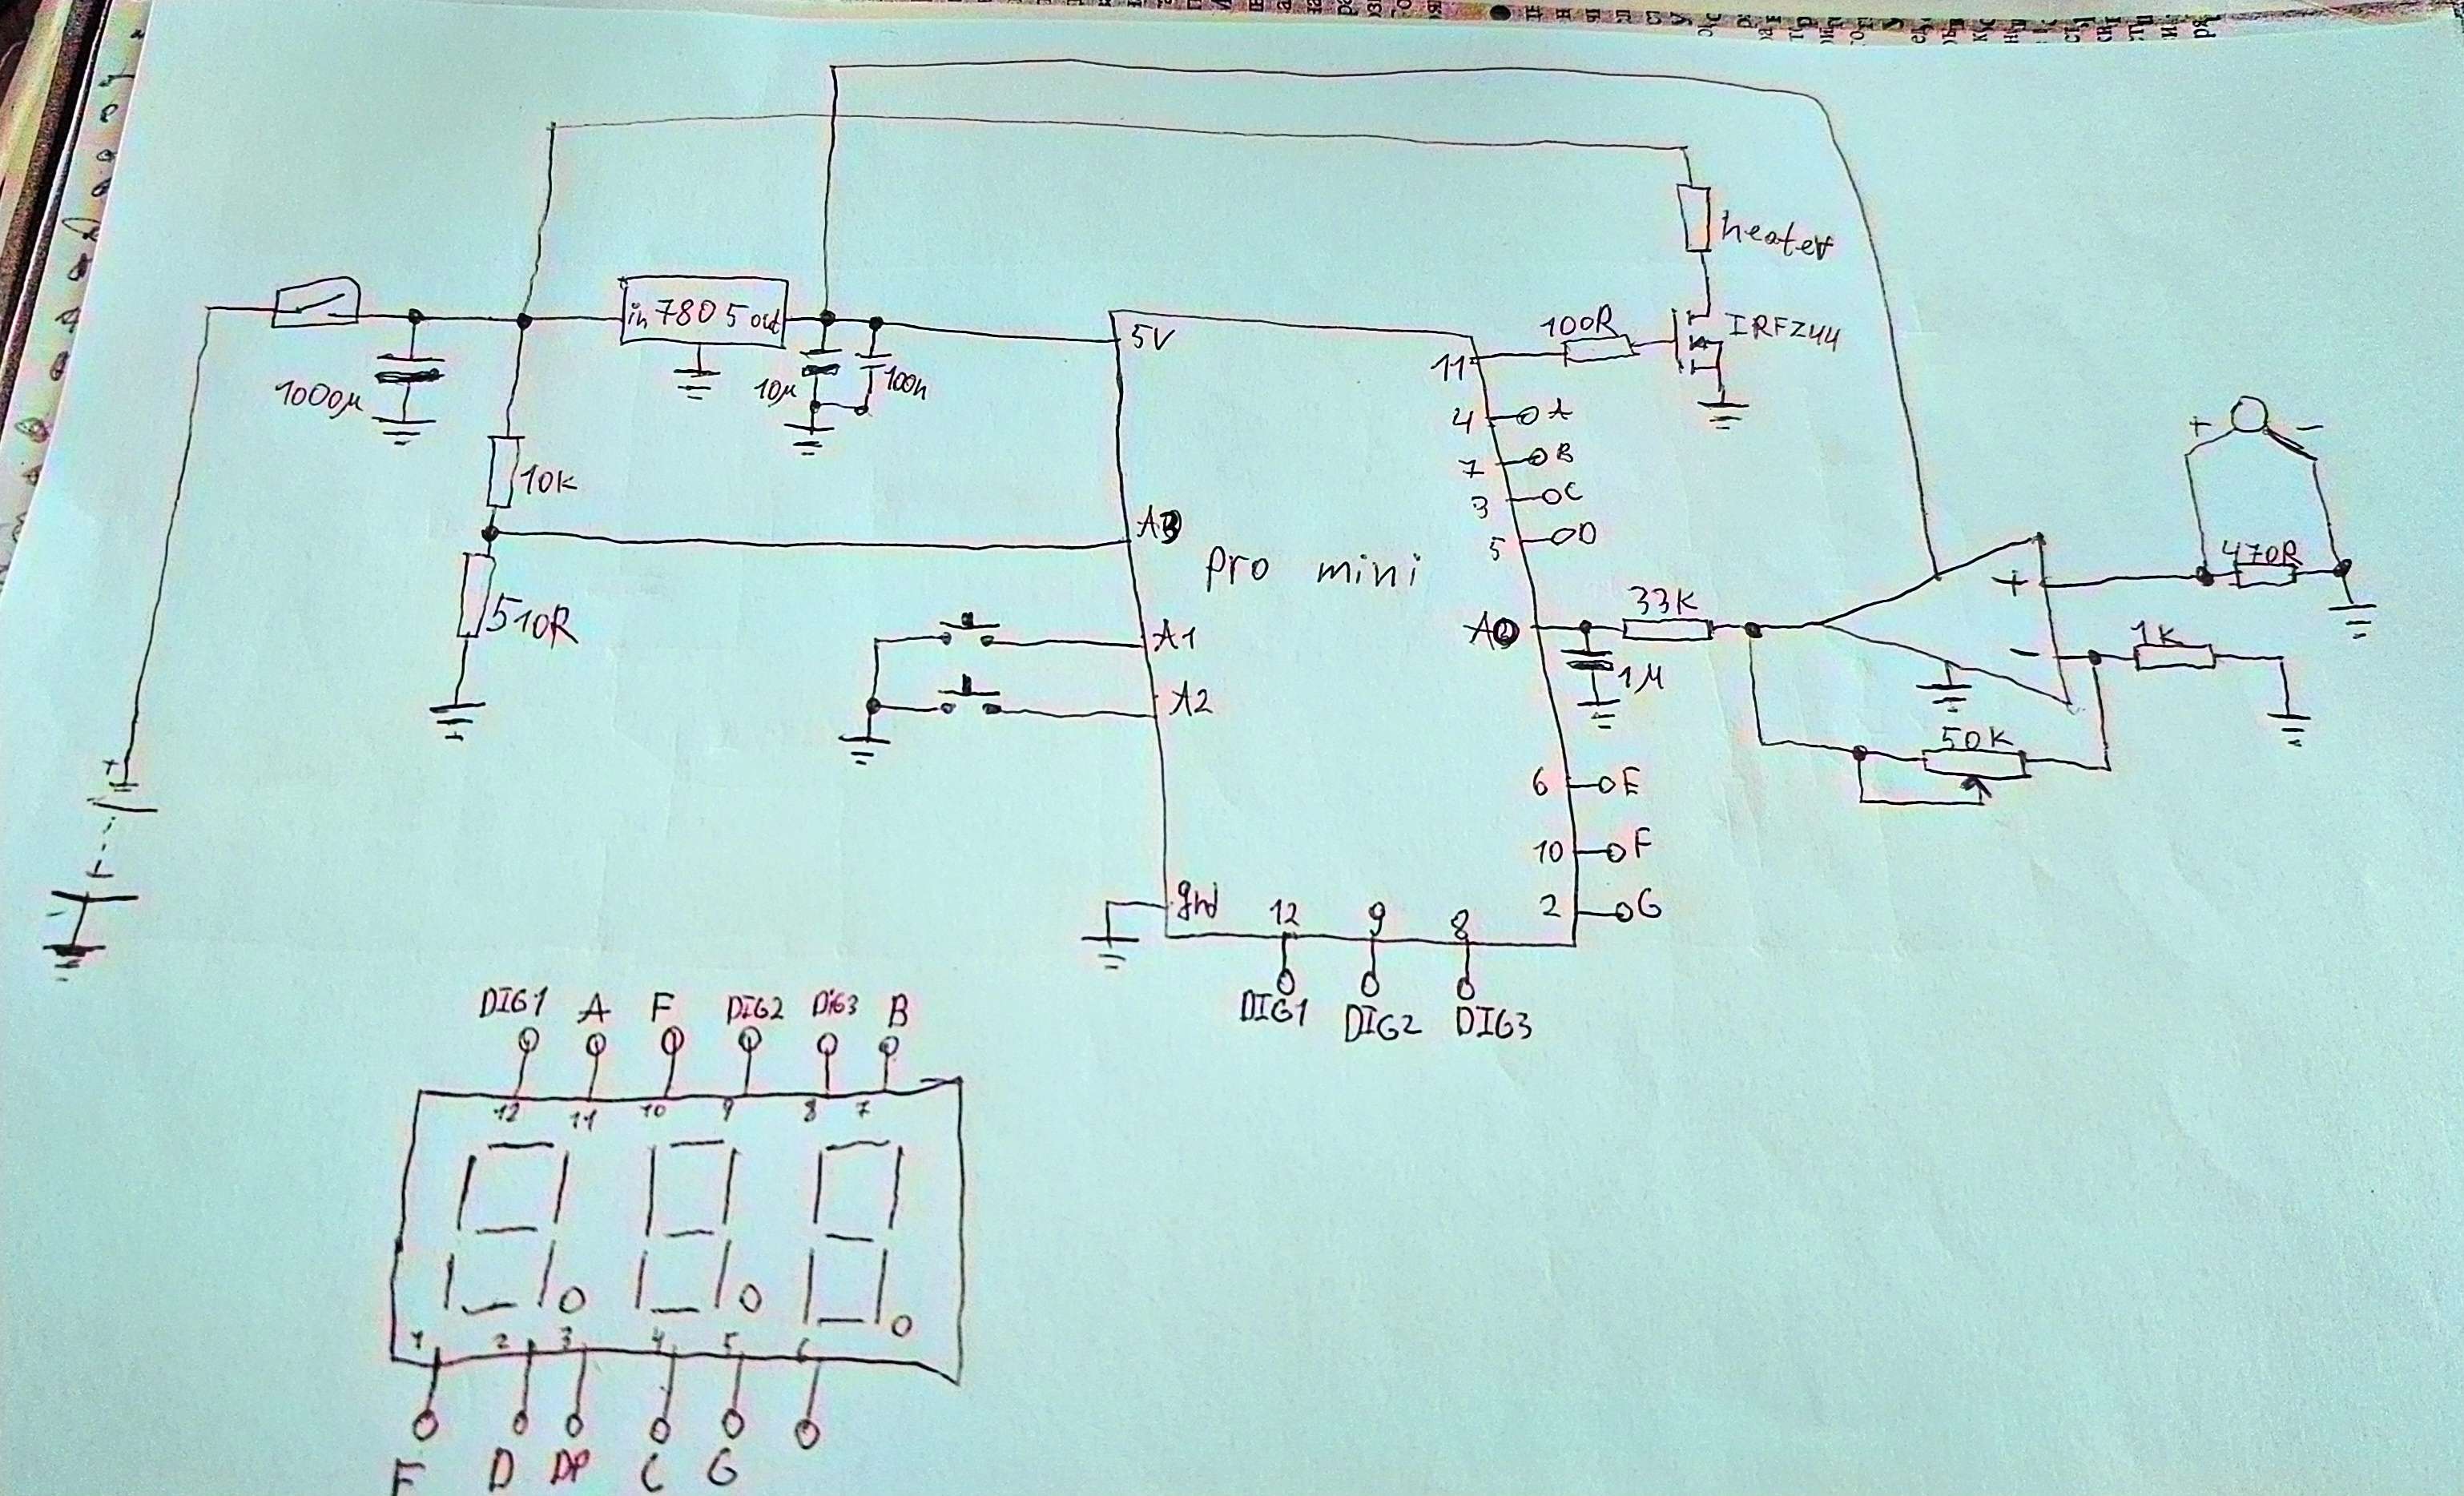 heater
in 7805 out
1000µ
10µ
100n
5V
11
100R
IRFZ44
4
A
7
B
3
C
5
D
+
-
10K
A3
pro mini
470R
510R
A1
A0
33K
+
-
1K
A2
1µ
50K
+
-
6
E
10
F
gnd
12
9
8
2
G
DIG1
DIG2
DIG3
DIG1
A
F
DIG2
DiG3
B
12
11
10
9
8
7
1
2
3
4
5
6
D
DP
C
G